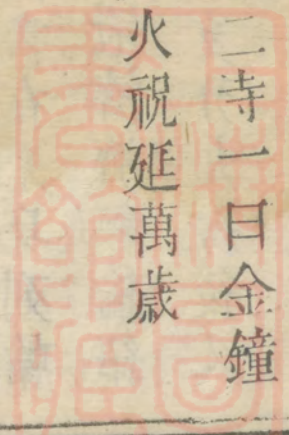 二寺一曰金鐘
火祝延萬歲